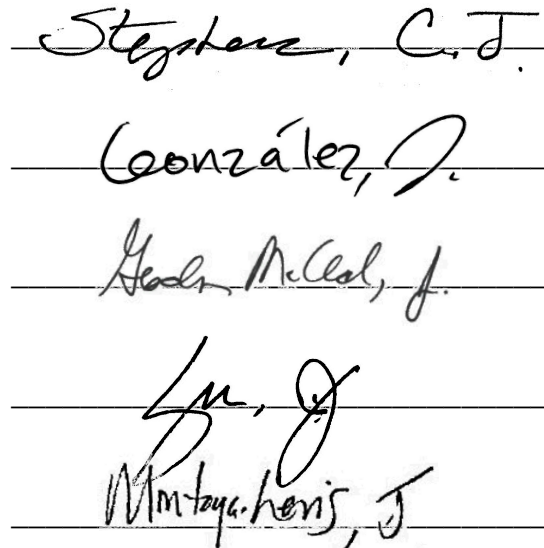 Stephens, C.J.
González, J.
Gordon McCloud, J.
Yu, J.
Montoya-Lewis, J